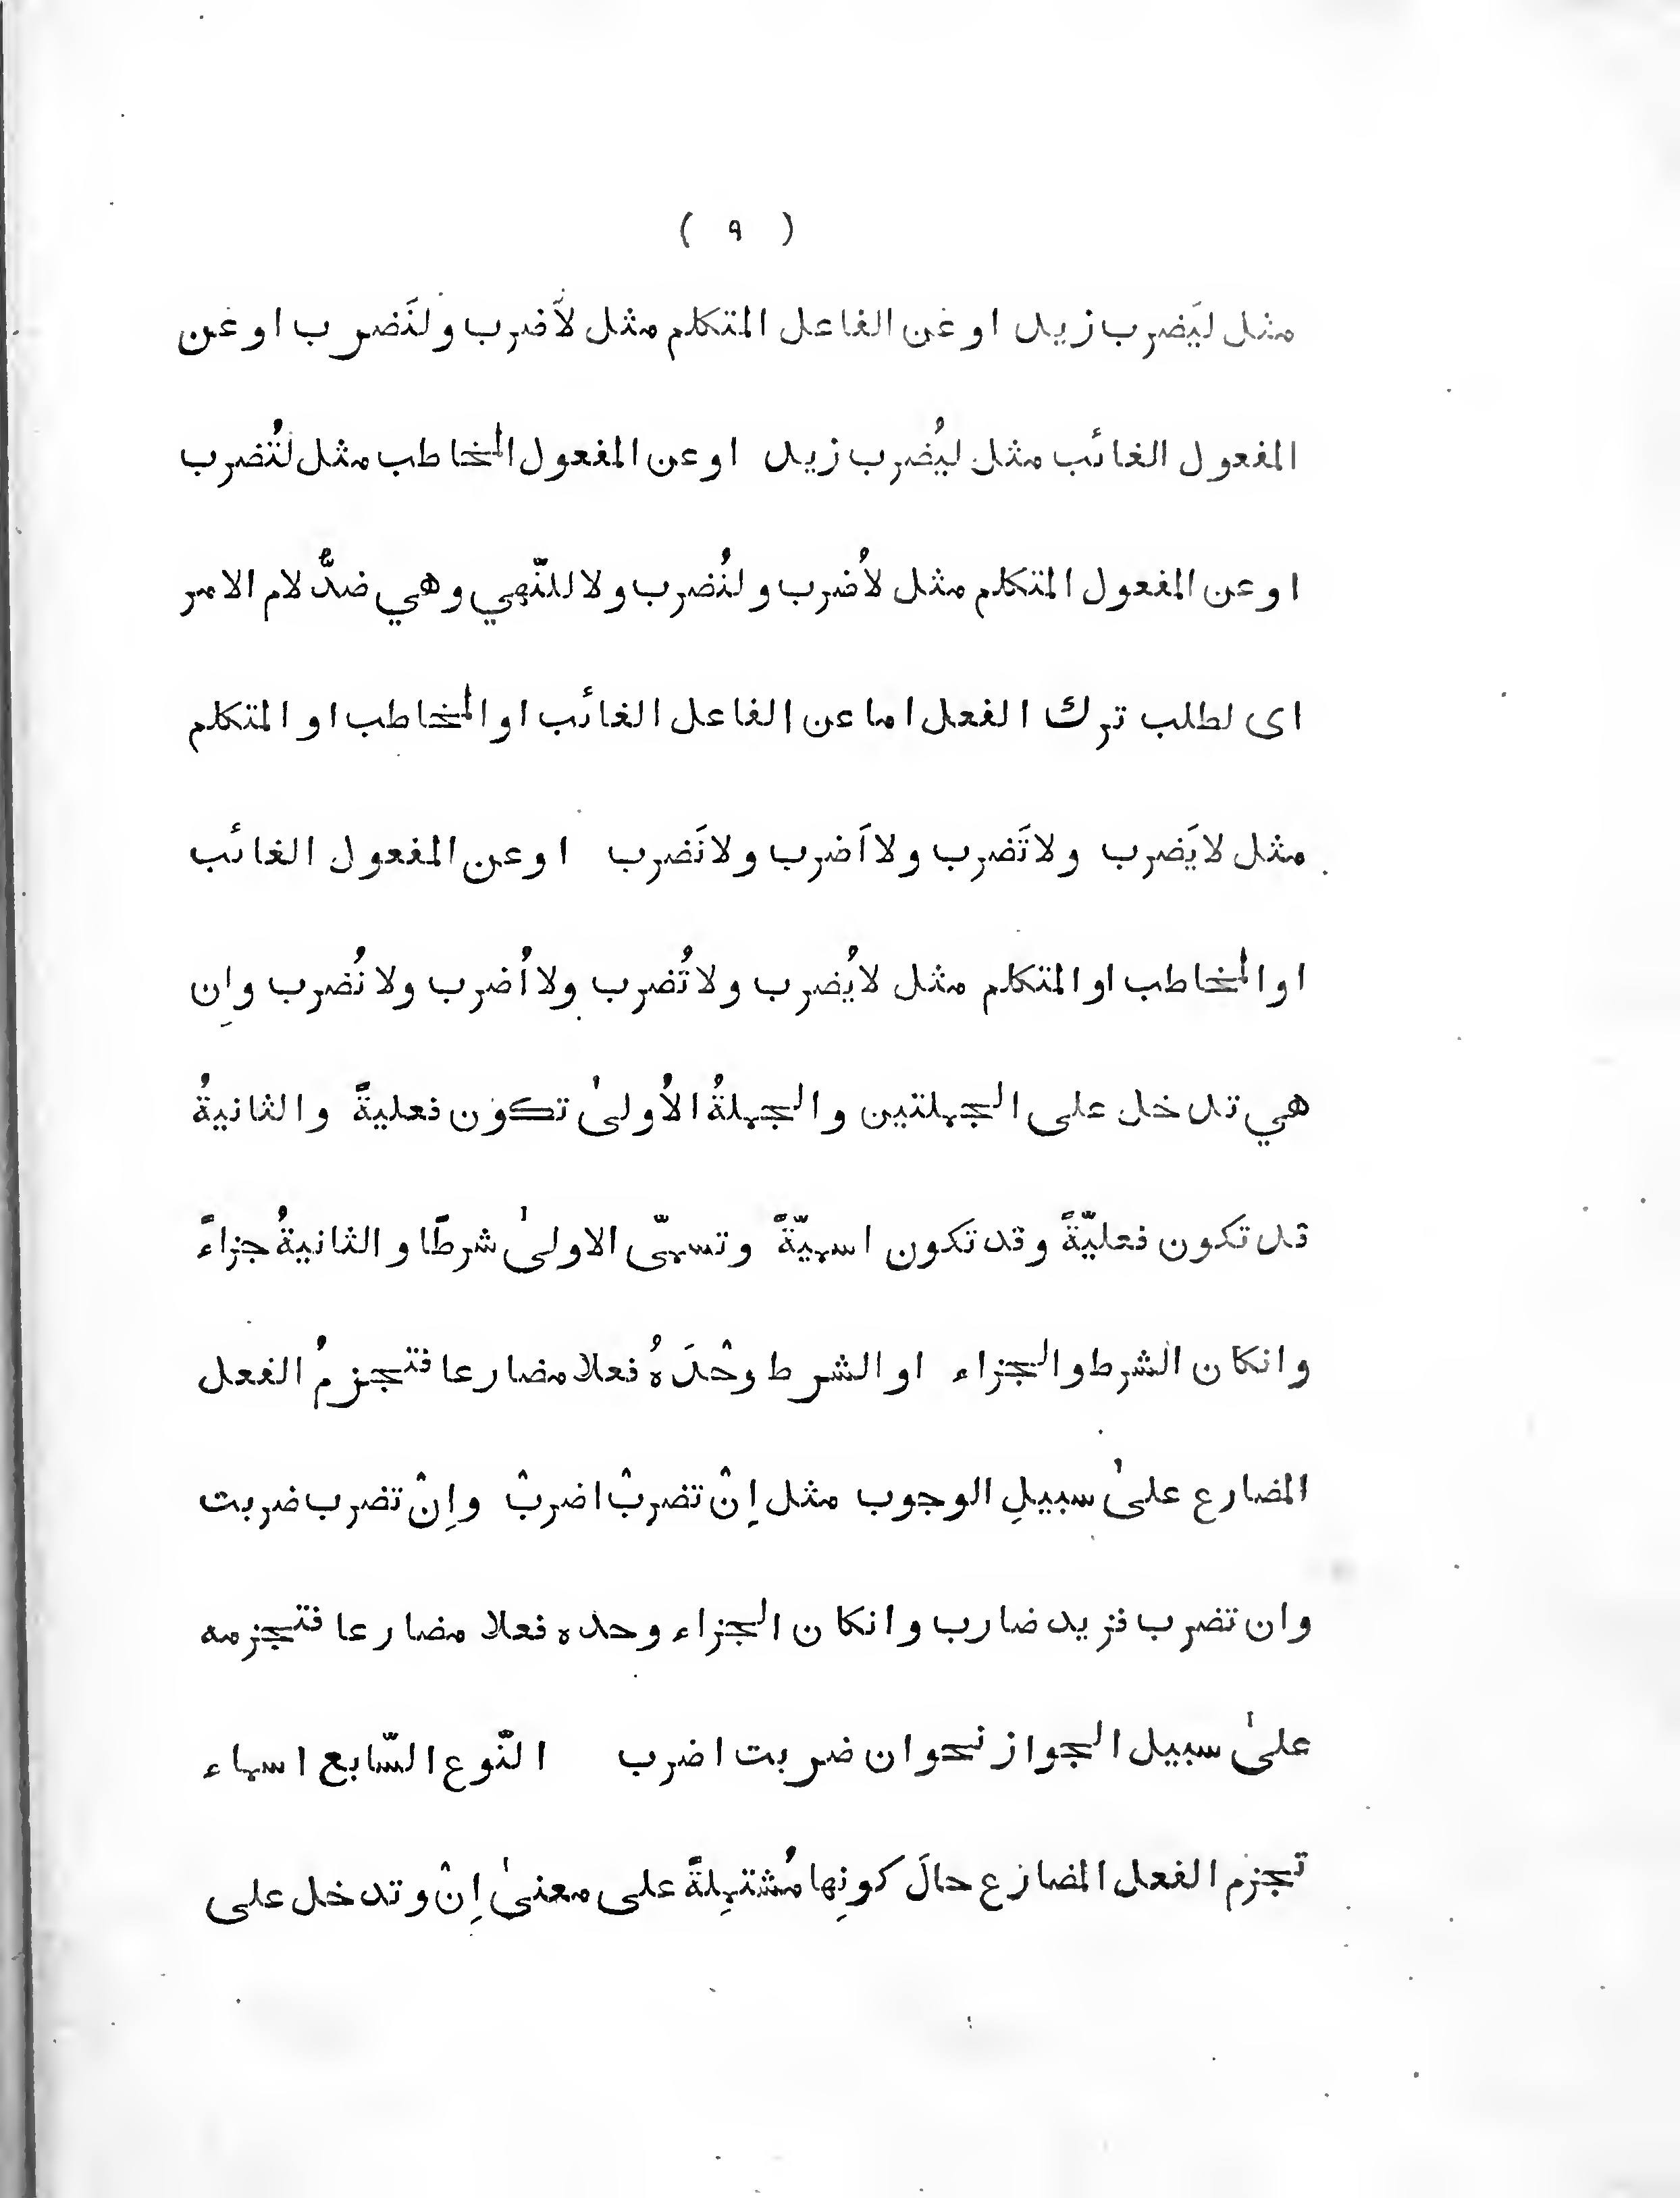 ( ٩ )
مثل ليَضرب زيد او عن الفاعل المتكلم مثل لاَضرب ولنَضرب او عن
المفعول الغائب مثل ليُضرب زيد او عن المفعول المخاطب مثل لتُضرب
او عن المفعول المتكلم مثل لاُضرب ولنُضرب ولا للنّهي وهي ضدُّ لام الامر
اى لطلب ترك الفعل اما عن الفاعل الغائب او المخاطب او المتكلم
مثل لا يَضرب ولا تَضرب ولا اَضرب ولا نَضرب او عن المفعول الغائب
او المخاطب او المتكلم مثل لا يُضرب ولا تُضرب ولا اُضرب ولا نُضرب واِن
هي تدخل على الجملتين والجملةُ الاُولىٰ تكون فعليةً والثانيةُ
قد تكون فعليّةً وقد تكون اسميّةً وتسمىّ الاولىٰ شرطًا والثانيةُ جزاءً
وانكان الشرط والجزاء او الشرط وحْدَهُ فعلا مضارعا فتجزمُ الفعل
المضارع علىٰ سبيلِ الوجوب مثل اِنْ تضربْ اضربْ واِنْ تضرب ضربت
وان تضرب فزيد ضارب وانكان الجزاء وحده فعلا مضارعا فتجزمه
علىٰ سبيل الجواز نحو ان ضربت اضرب النّوع السّابع اسماء
تجزم الفعل المضارع حالَ كونِها مُشتمِلةً على معنىٰ اِنْ وتدخل على